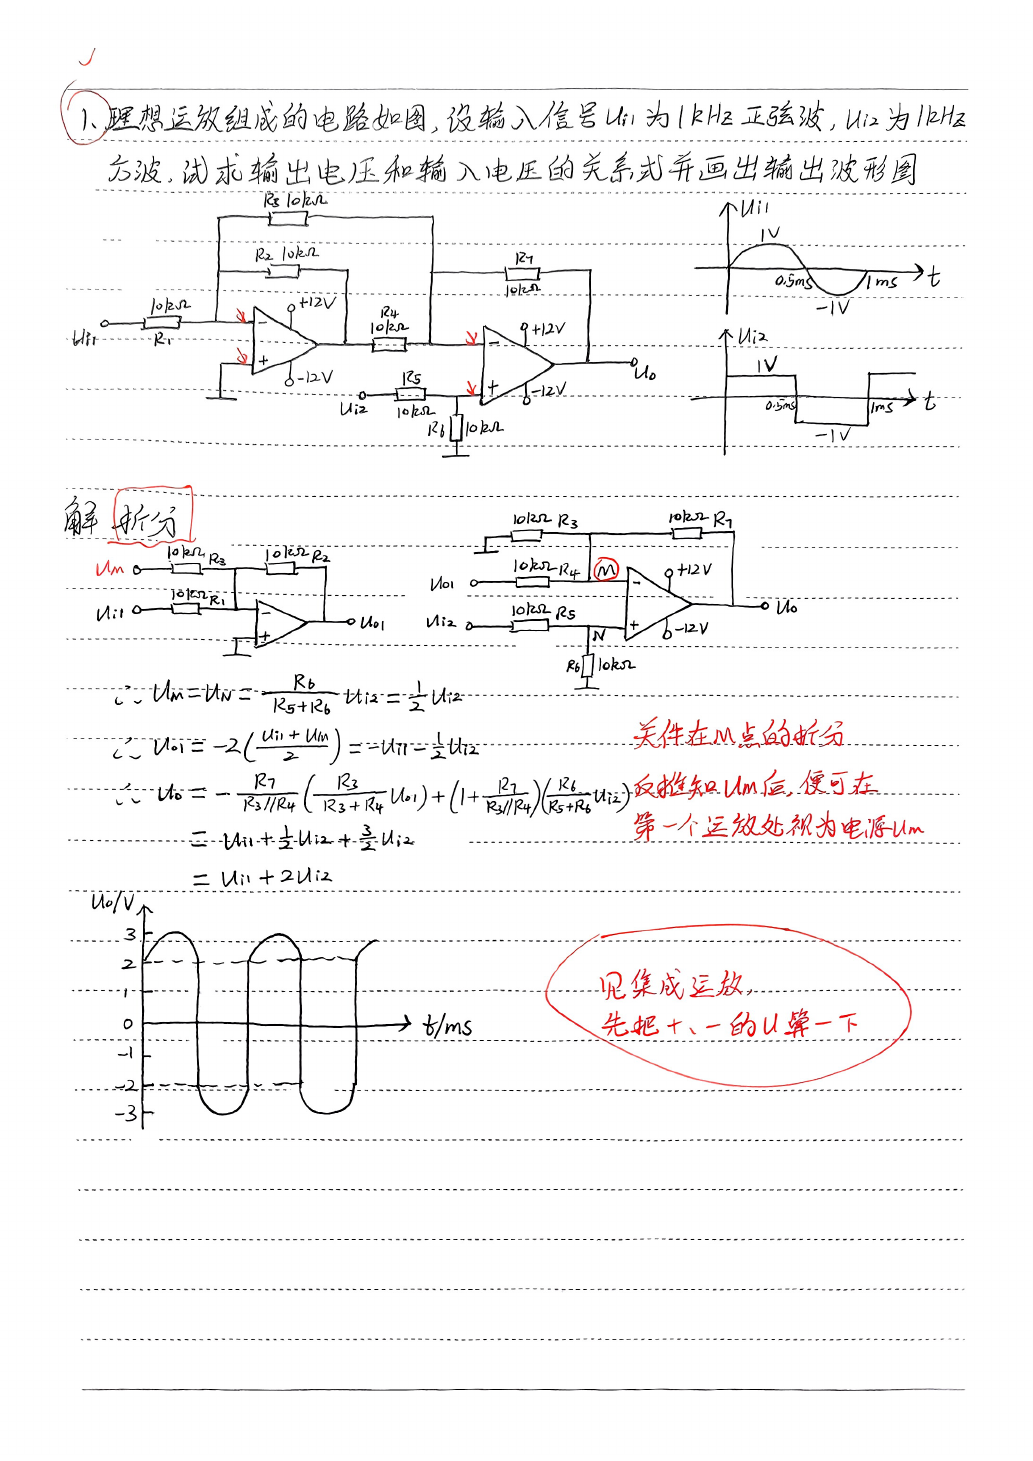 1、理想运放组成的电路如图,设输入信号Ui1为1kHz正弦波,Ui2为1kHz
方波.试求输出电压和输入电压的关系式并画出输出波形图
R3 10kΩ
R2 10kΩ
10kΩ
R1
Ui1
+12V
-12V
-
+
R4
10kΩ
R7
10kΩ
+12V
-12V
-
+
Uo
R5
10kΩ
Ui2
R6
10kΩ
Ui1
1V
0.5ms
1ms
t
-1V
Ui2
1V
0.5ms
1ms
t
-1V
解 拆分
Um
10kΩ R3
10kΩ R2
Ui1
10kΩ R1
-
+
Uo1
10kΩ R3
10kΩ R7
Uo1
10kΩ R4
M
+12V
Ui2
10kΩ R5
N
-
+
-12V
Uo
R6 10kΩ
∴ UM=UN= R6/(R5+R6) Ui2 = 1/2 Ui2
∴ Uo1 = -2( (Ui1+UM)/2 ) = -Ui1 - 1/2 Ui2
∴ Uo = - R7/(R3//R4) ( R3/(R3+R4) Uo1) + (1+ R7/(R3//R4))( R6/(R5+R6) Ui2)
= Ui1 + 1/2 Ui2 + 3/2 Ui2
= Ui1 + 2Ui2
关件在M点的拆分
反推知UM后,便可在
第一个运放处视为电源Um
Uo/V
3
2
1
0
-1
-2
-3
t/ms
见集成运放,
先把+、-的U算一下